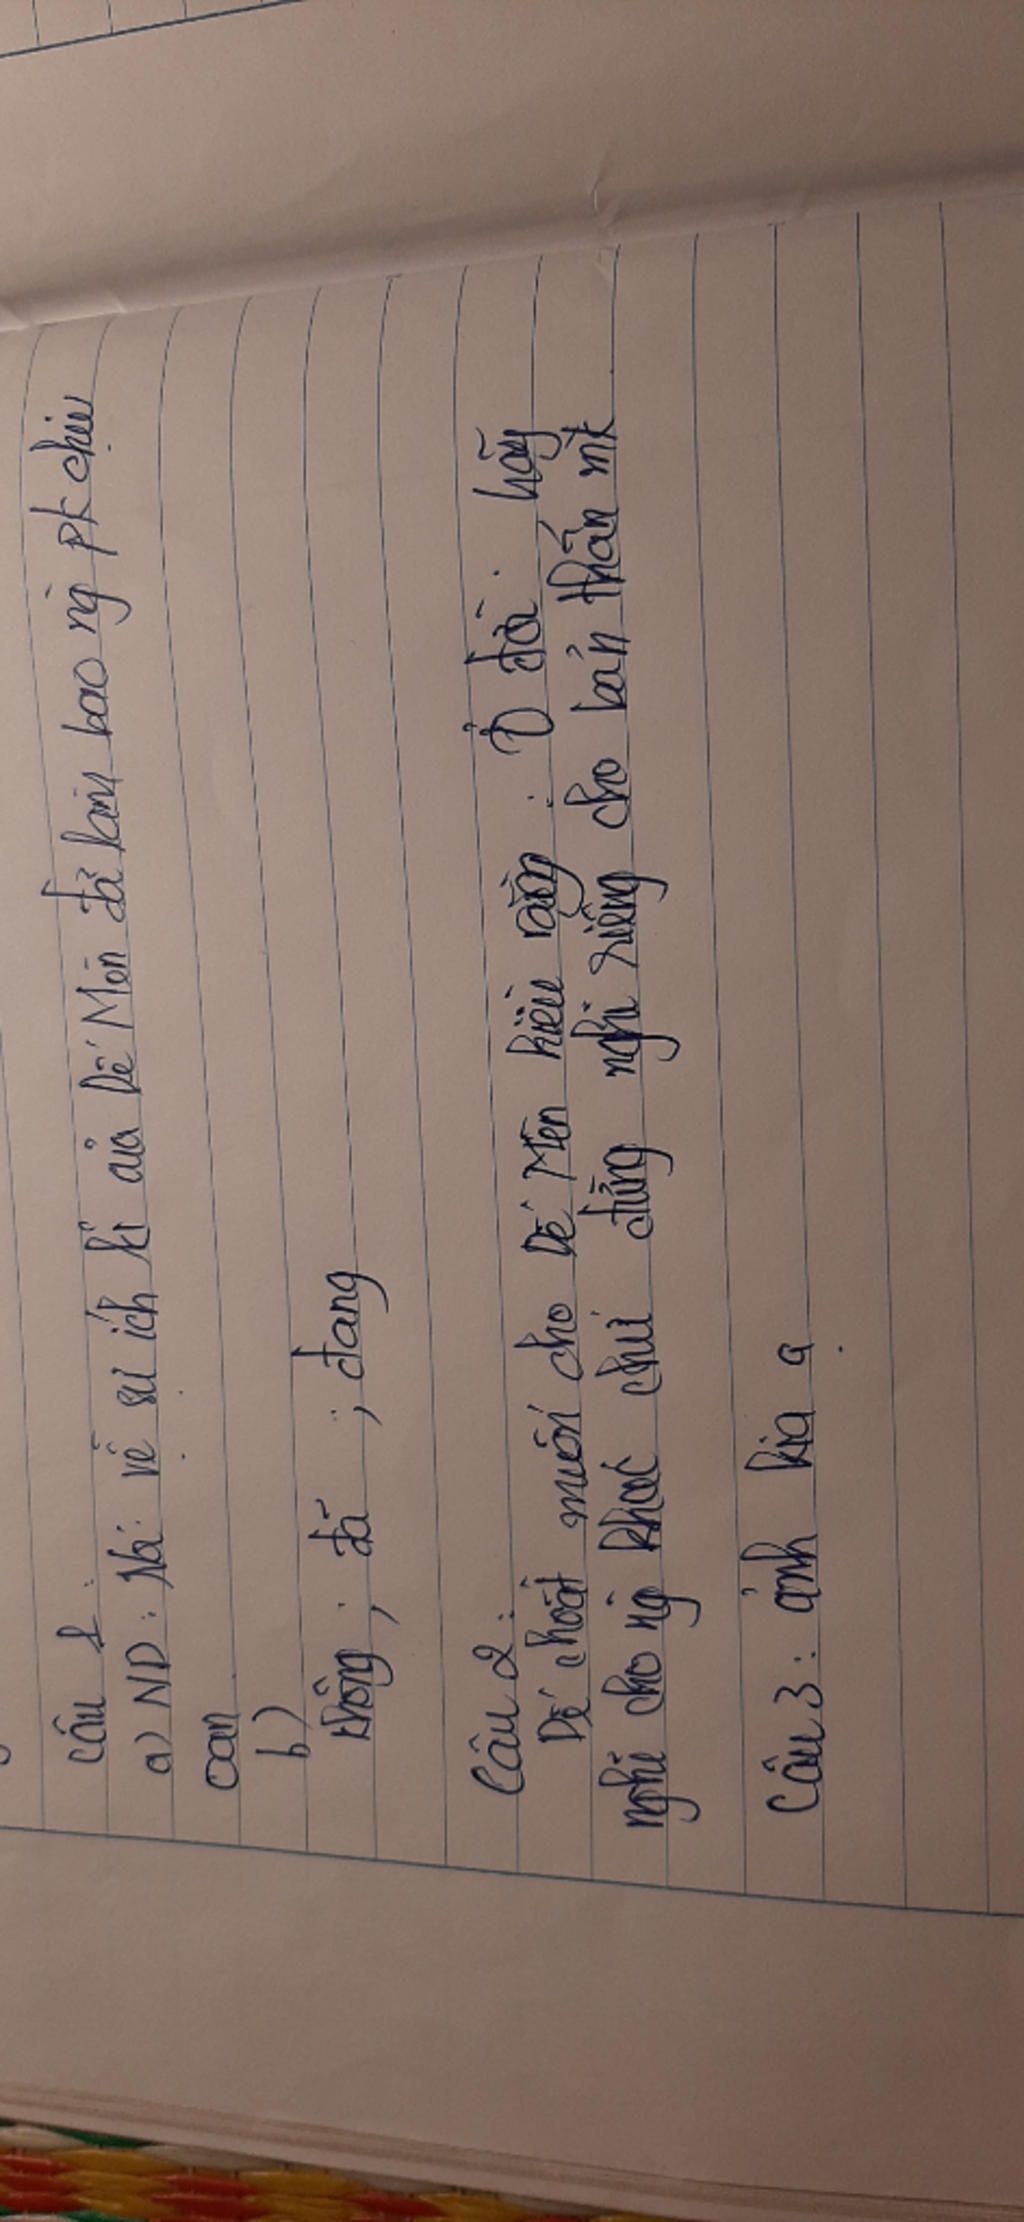 Câu 1:
a) ND: Nói về sự ích kỉ của Dế Mèn đã làm bao ng pk chịu
oan
b)
không; đã; đang
Câu 2:
Dế choắt muốn cho Dế Mèn hiểu rằng: Ở đời hãy
nghĩ cho ng khác chứ đừng nghĩ riêng cho bản thân mk
Câu 3: ảnh kia ạ